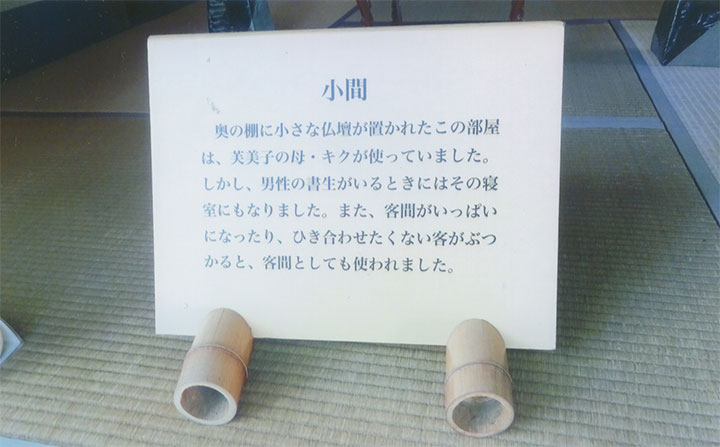 小間
奥の棚に小さな仏壇が置かれたこの部屋
は、芙美子の母・キクが使っていました。
しかし、男性の書生がいるときにはその寝
室にもなりました。また、客間がいっぱい
になったり、ひき合わせたくない客がぶつ
かると、客間としても使われました。